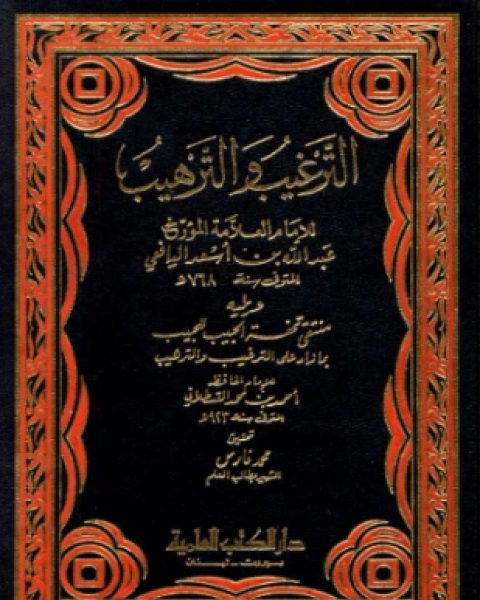 الترغيب والترهيب
للإمام العلامة المؤرخ
عبد الله بن أسعد اليافعي
المتوفى سنة ٧٦٨ هـ
وعليه
منتقى تحفة الحبيب للحبيب
بما زاد على الترغيب والترهيب
للإمام الحافظ
أحمد بن محمد القسطلاني
المتوفى سنة ٩٢٣ هـ
تحقيق
محمد فارس
الشهير بطالب العلم
دار الكتب العلمية
بيروت - لبنان